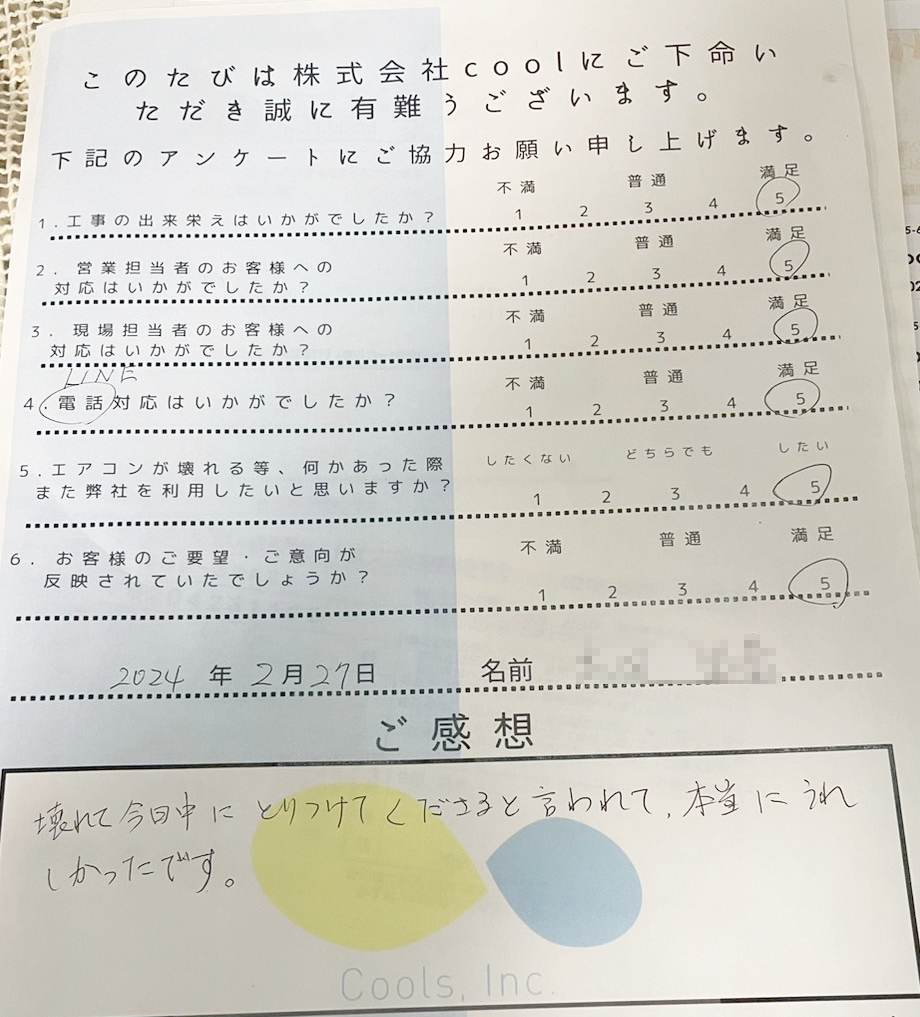 このたびは株式会社coolにご下命い
ただき誠に有難うございます。
下記のアンケートにご協力お願い申し上げます。
不満 普通 満足
1.工事の出来栄えはいかがでしたか? 1 2 3 4 5
不満 普通 満足
2. 営業担当者のお客様への
対応はいかがでしたか? 1 2 3 4 5
不満 普通 満足
3. 現場担当者のお客様への
対応はいかがでしたか? 1 2 3 4 5
LINE
不満 普通 満足
4.電話対応はいかがでしたか? 1 2 3 4 5
したくない どちらでも したい
5.エアコンが壊れる等、何かあった際
また弊社を利用したいと思いますか? 1 2 3 4 5
不満 普通 満足
6. お客様のご要望・ご意向が
反映されていたでしょうか? 1 2 3 4 5
2024 年 2月27日 名前
ご感想
壊れて今日中にとりつけてくださると言われて、本当にうれ
しかったです。
Cools, Inc.